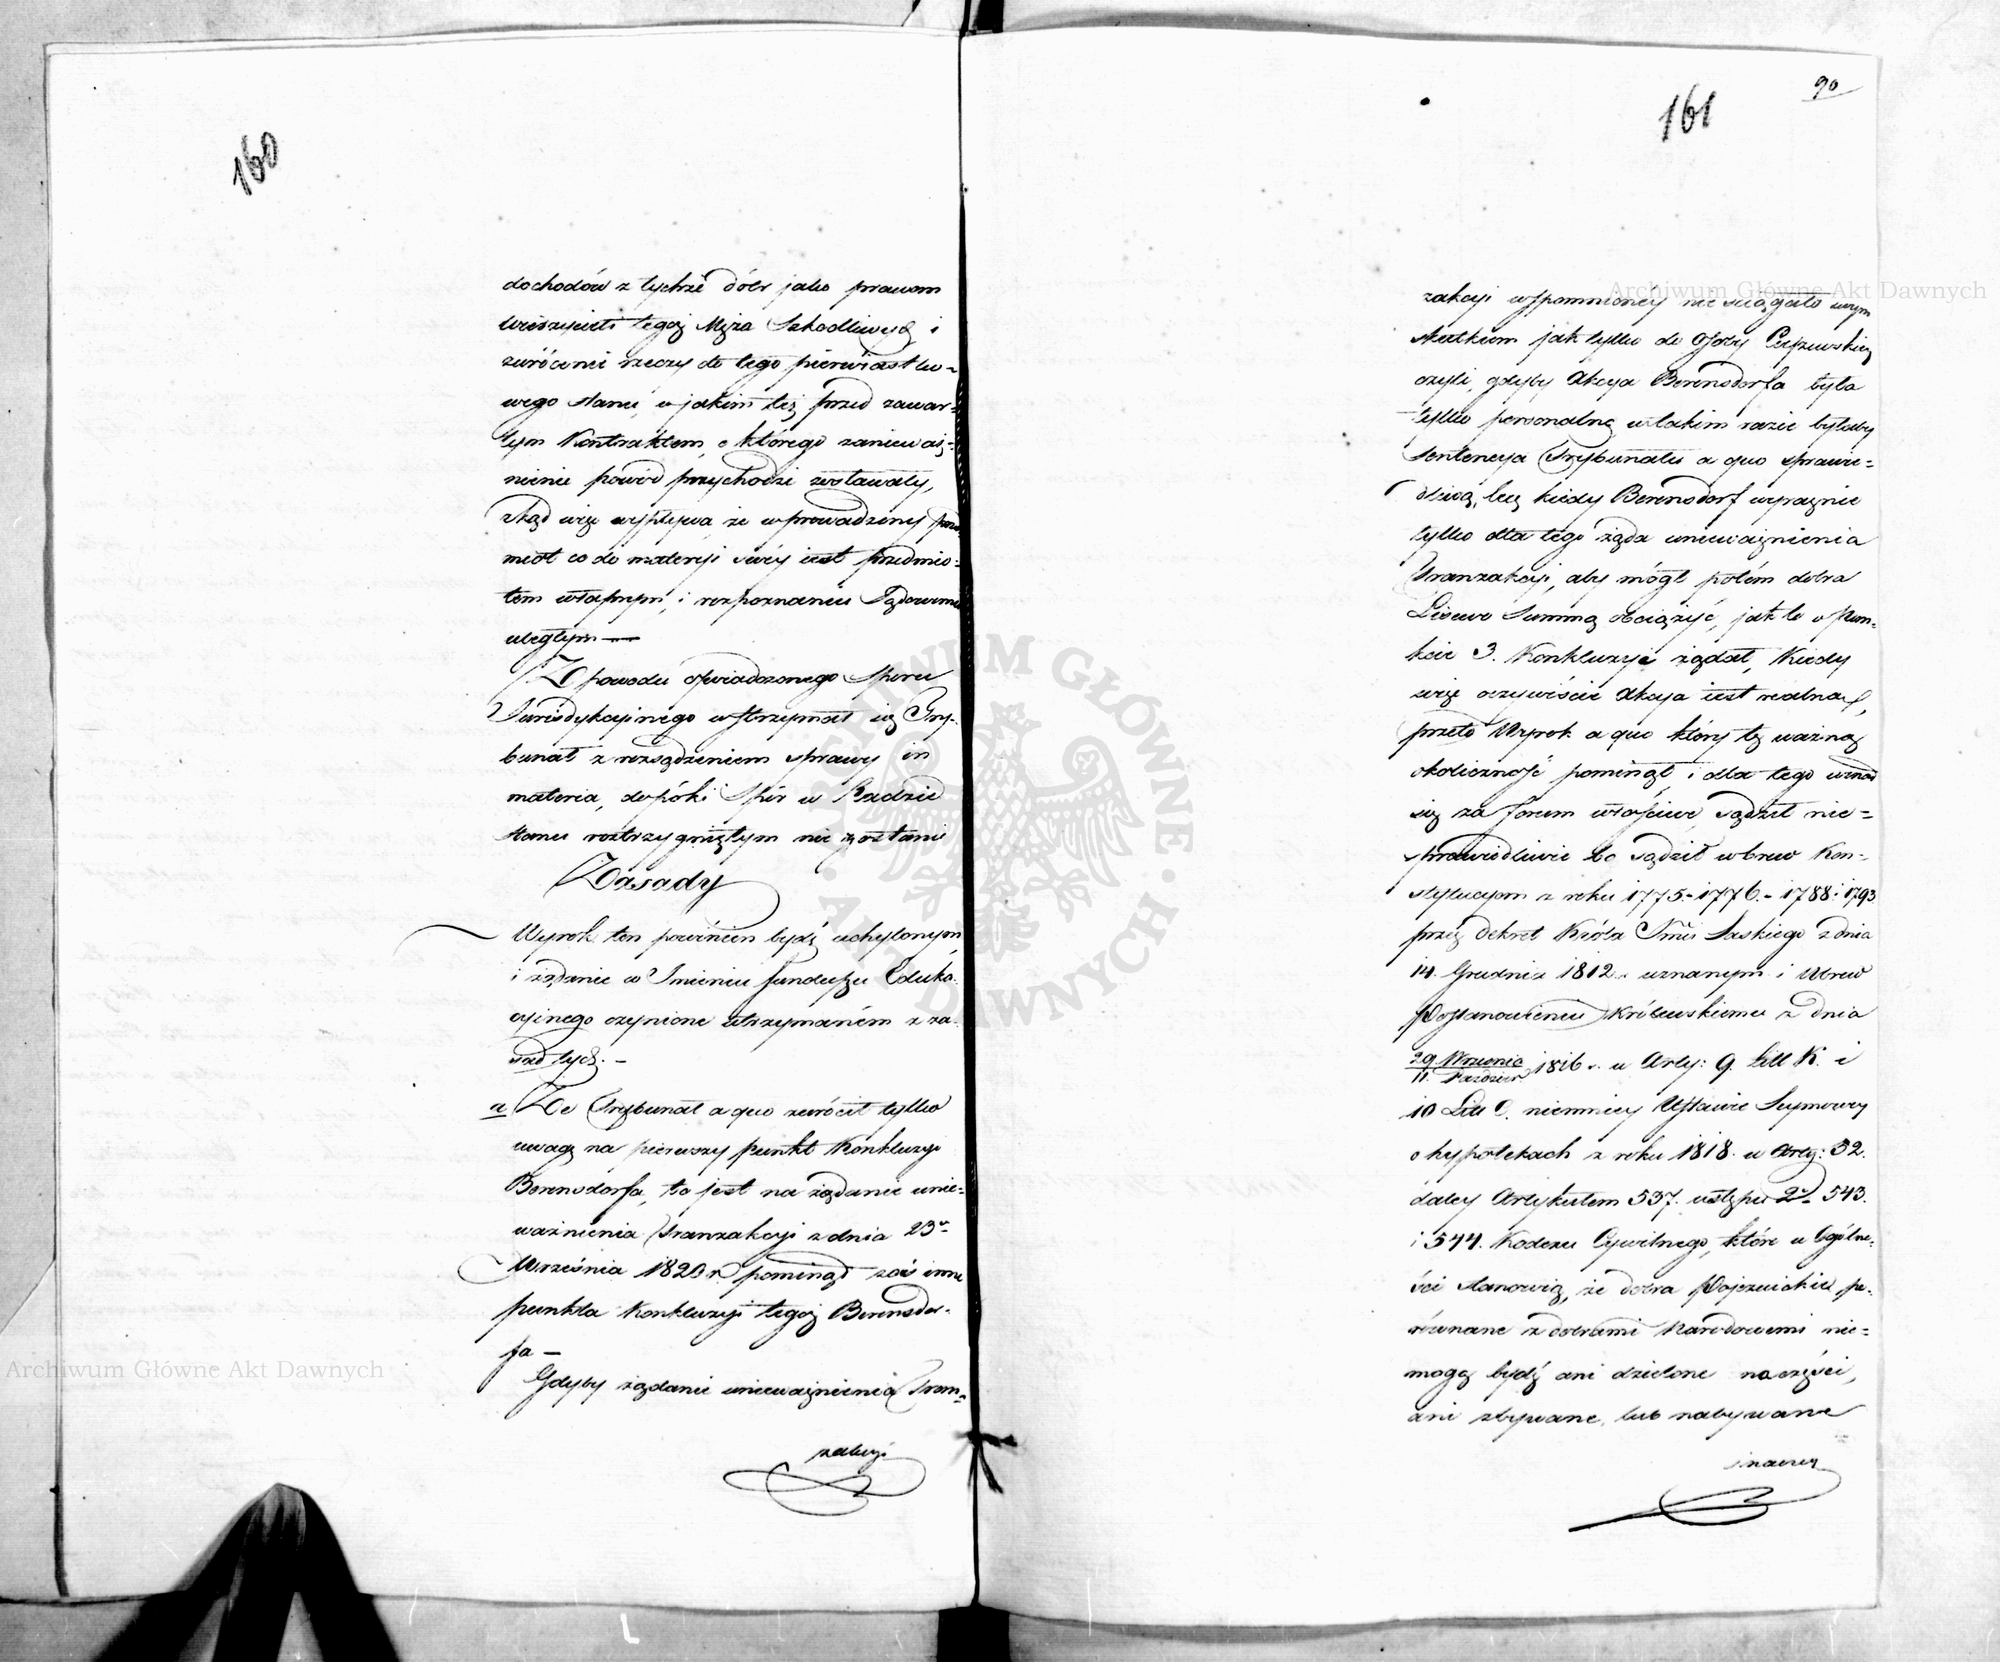 160
dochodów z tychże dóbr jako prawom
wieczystém tegoż Męża Szkodliwych i
zwrócenie rzeczy do tego pierwiastko-
wego stanu, w jakim też przed zawar-
tym Kontraktem, o którego zaniewaź-
nienie powód przychodzi zostawały,
ztąd więc wypływa, że wprowadzony przed
miot co do materyi swéy iest przedmio-
tem własnym, i rozpoznaniu Sądowemu
uległym —
Z powodu oświadczonego Sporu
Jurisdykcyinego wstrzymał się Try-
bunał z rozsądzeniem sprawy in
materia, dopóki Spór w Radzie
stanu roztrzygniętym nie zostanie
Zasady
Wyrok ten powinien bydź uchylonym
i żądanie w Imieniu funduszu Eduka-
cyinego czynione utrzymaném z za-
sad tych. —
a Że Trybunał a quo zwrócił tylko
uwagę na pierwszy punkt Konkluzyi
Berensdorfa, to jest na żądanie unie-
ważnienia Tranzakcyi z dnia 23o
Września 1820 r. pominął zaś inne
punkta Konkluzyi tegoż Berensdor-
fa —
Gdyby żądanie unieważnienia Tran-
zakcyi
90
161
zakcyi wspomnioney nie ściągało innym
skutkiem jak tylko do osoby
czyli, gdyby Akcya Berensdorfa była
tylko personalną w takim razie byłaby
Sentencya Trybunału a quo sprawie-
dliwą, lecz kiedy Berensdorf wyraźnie
tylko dla tego żąda unieważnienia
Tranzakcyi, aby mógł potém dobra
Lisewo Summą obciążyć, jak to w Pun-
kcie 3. Konkluzyi żądał, Kiedy
więc oczywiście Akcya iest realna,
przeto Wyrok a quo który tę ważną
okoliczność pominął, i dla tego uznał
się za forum właściwe, sądził nie-
sprawiedliwie bo sądził wbrew Kon-
stytucyom z roku 1775.- 1776.- 1788. i 1793
przez dekret Króla Jmci Saskiego z dnia
14. Grudnia 1812. r. uznanym i wbrew
Postanowieniu Królewskiemu z dnia
29 Września / 11. Paździer. 1816 r. w Arty: 9. Litt K. i
10 Litt O. niemniey Ustawie Seymowey
o hypotekach z roku 1818. w Arty: 32.
daley Artykułem 537. ustępu 2o 543.
i 544. Kodexu Cywilnego, które w Ogólno-
ści stanowią, że dobra Pojezuickie po-
równane z dobrami Narodowemi nie-
mogą bydź ani dzielone na części,
ani zbywane, lub nabywane
inaczey
Archiwum Główne Akt Dawnych
Archiwum Główne Akt Dawnych
ARCHIWUM GŁÓWNE AKT DAWNYCH